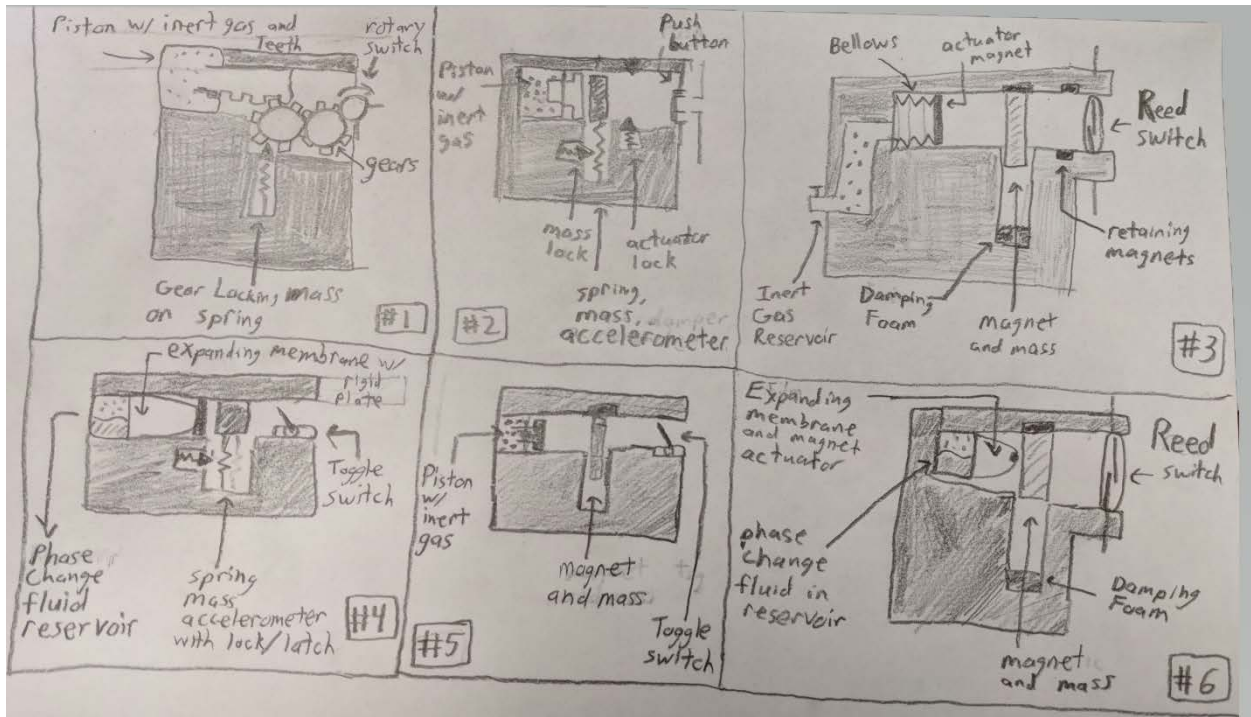 Piston w/ inert gas and
Teeth
rotary
switch
gears
Gear Locking mass
on spring
#1
Piston
w/
inert
gas
Push
button
mass
lock
actuator
lock
spring,
mass, damper
accelerometer
#2
Bellows
actuator
magnet
Reed
switch
retaining
magnets
Inert
Gas
Reservoir
Damping
Foam
magnet
and mass
#3
expanding membrane w/
rigid
plate
Toggle
switch
Phase
Change
fluid
reservoir
spring
mass
accelerometer
with lock/latch
#4
Piston
w/
inert
gas
magnet
and mass
Toggle
switch
#5
Expanding
membrane
and magnet
actuator
Reed
switch
phase
change
fluid in
reservoir
Damping
Foam
magnet
and mass
#6